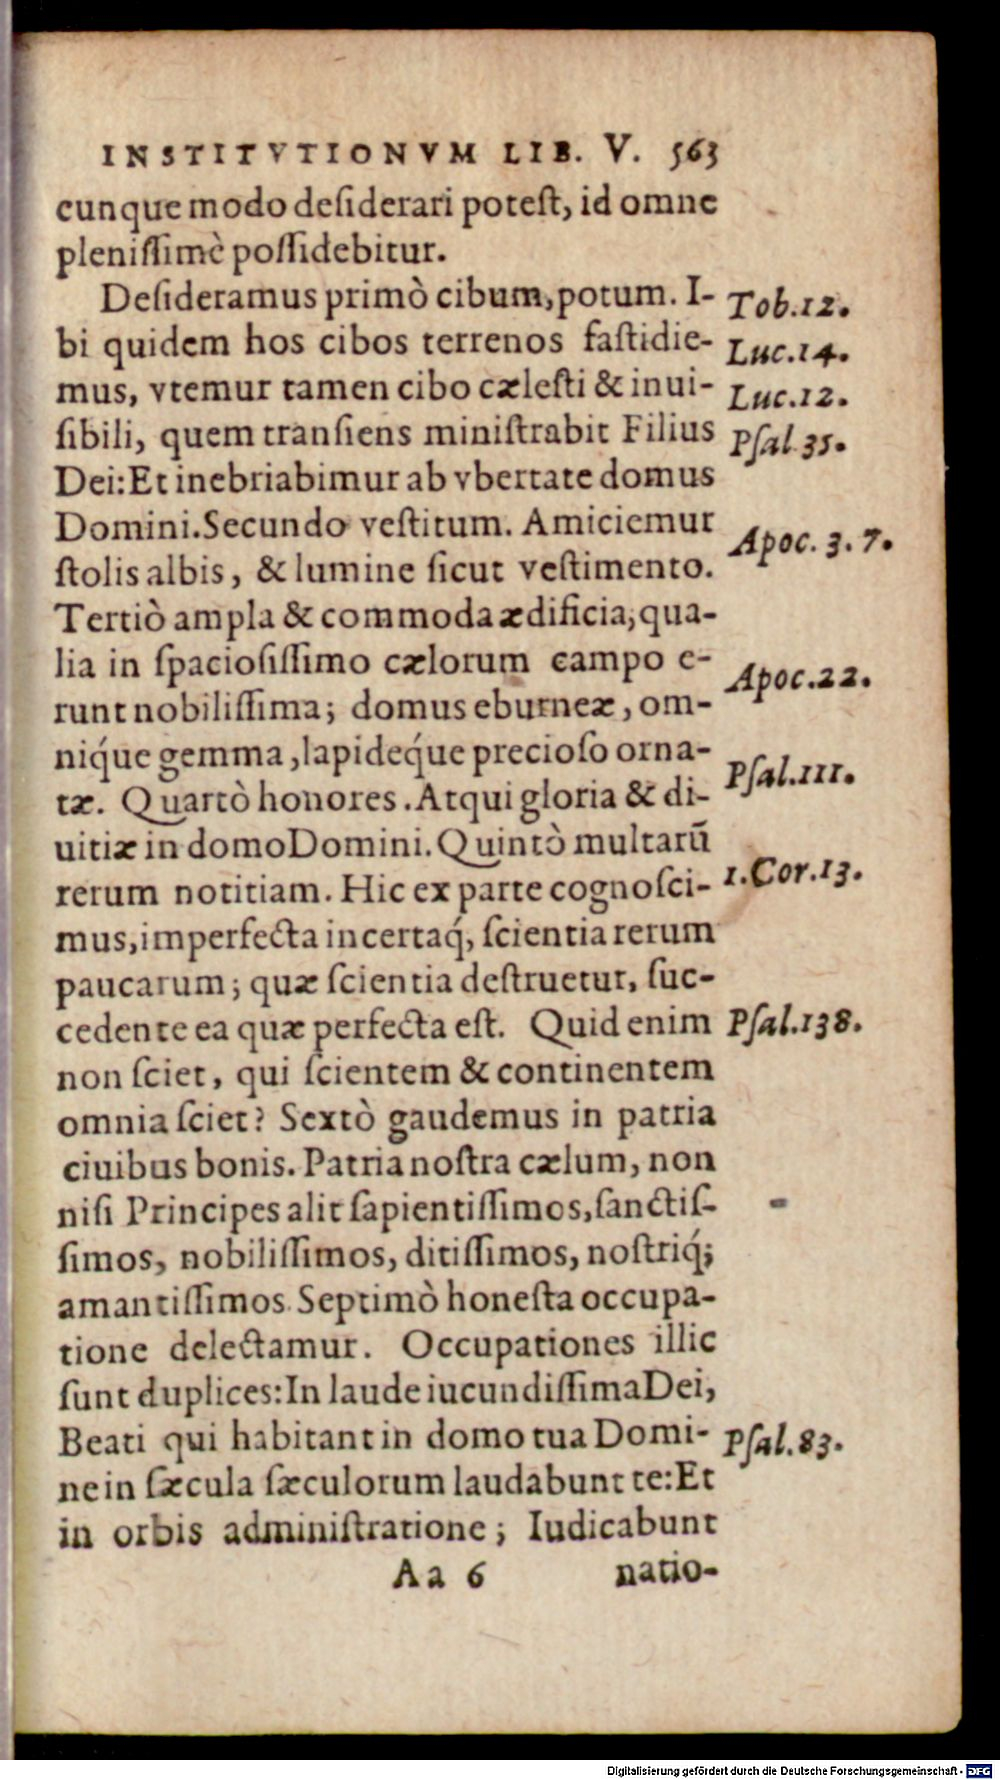 INSTITVTIONVM LIB. V. 563
cunque modo desiderari potest, id omne
plenissimè possidebitur.
Desideramus primò cibum, potum. I- Tob.12.
bi quidem hos cibos terrenos fastidie- Luc.14.
mus, vtemur tamen cibo cælesti & inui- Luc.12.
sibili, quem transiens ministrabit Filius Psal 35.
Dei: Et inebriabimur ab vbertate domus
Domini. Secundo vestitum. Amiciemur Apoc. 3. 7.
stolis albis, & lumine sicut vestimento.
Tertiò ampla & commoda ædificia, qua-
lia in spaciosissimo cælorum campo e- Apoc.22.
runt nobilissima; domus eburneæ, om-
niq́ue gemma, lapideq́ue precioso orna- Psal.111.
tæ. Quartò honores. Atqui gloria & di-
uitiæ in domo Domini. Quintò multarū
rerum notitiam. Hic ex parte cognosci- 1.Cor.13.
mus, imperfecta incertaq́, scientia rerum
paucarum; quæ scientia destruetur, suc-
cedente ea quæ perfecta est. Quid enim Psal.138.
non sciet, qui scientem & continentem
omnia sciet? Sextò gaudemus in patria
ciuibus bonis. Patria nostra cælum, non
nisi Principes alit sapientissimos, sanctis-
simos, nobilissimos, ditissimos, nostriq́;
amantissimos. Septimò honesta occupa-
tione delectamur. Occupationes illic
sunt duplices: In laude iucundissima Dei,
Beati qui habitant in domo tua Domi- Psal.83.
ne in sæcula sæculorum laudabunt te: Et
in orbis administratione; Iudicabunt
Aa 6 natio-
Digitalisierung gefördert durch die Deutsche Forschungsgemeinschaft - DFG